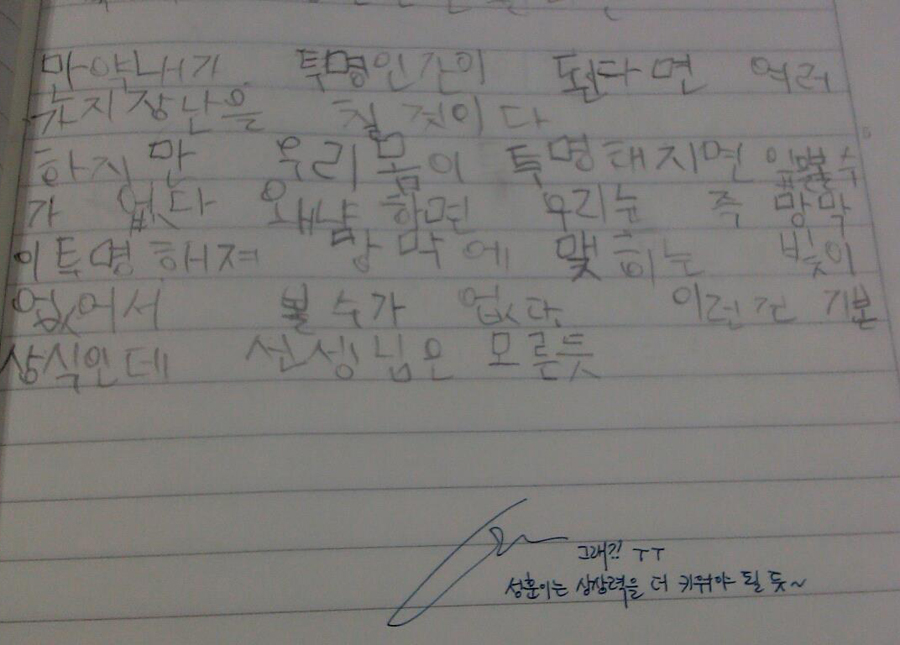 만약내가 투명인간이 된다면 여러
가지장난을 칠 것이다
하지만 우리몸이 투명해지면 앞볼수
가 없다 왜냠 하면 우리눈 즉 망막
이투명해져 망막에 맺히는 빛이
없어서 볼수가 없다. 이런건 기본
상식인데 선생님은 모른듯
그래?! ㅜㅜ
성훈이는 상상력을 더 키워야 될 듯~